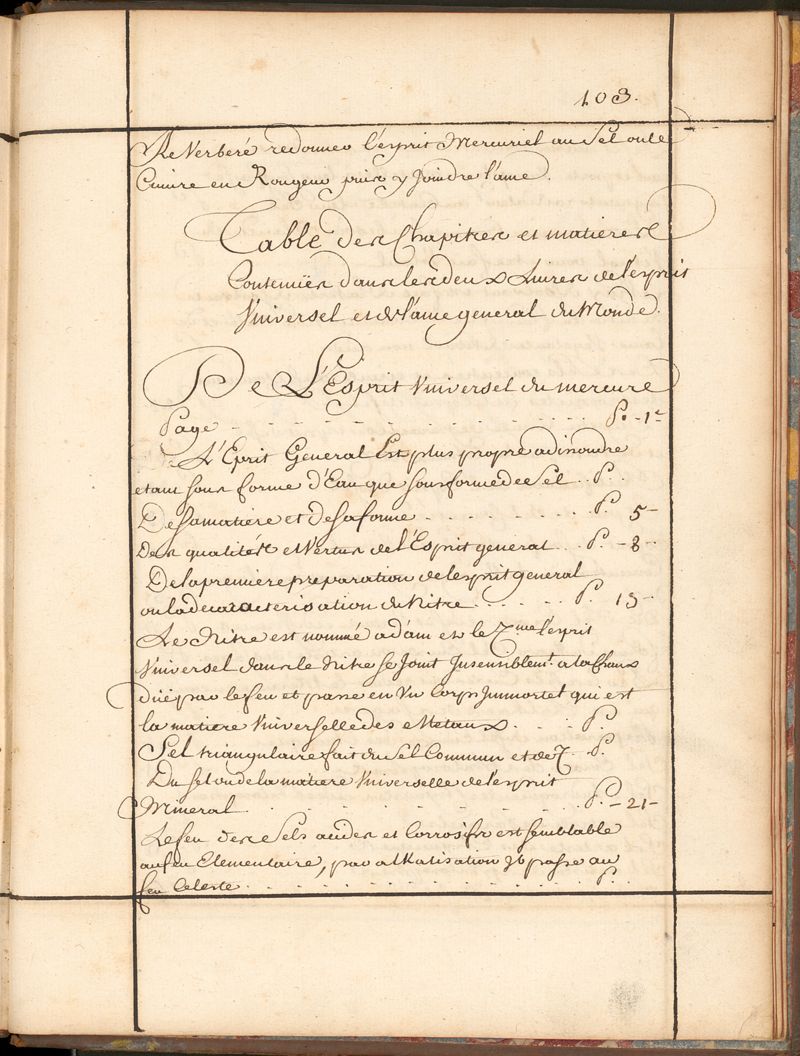 103.
Reverberé redonner l'esprit Mercuriel au Sel ou le
Cuivre en Rougeur puis y Joindre l'ame.
Table des Chapitres et matieres
Contenües dans les deux Livres de l'esprit
Vniversel et de l'ame general du Monde.
De L'Esprit Vniversel du mercure
Page . . . . . . . . . . P. -1e
L'Eprit General Est plus propre a disoudre
etant sous forme d'Eau que sous forme de Sel . . P. .
De sa matiere et de sa forme . . . . . . . . P. 5-
Des qualités et Vertus de l'Esprit general . . P. -8-
De la premiere preparation de l'esprit general
ou la decaracterisation du Nitre . . . . . . P. 13
Le Nitre est nommé adam et le 7me l'esprit
Vniversel dans le Nitre se Joint Jnsensiblemt. a la Chaux
par le feu et passe en Vn Corps Jmmortel qui est
la matiere Vniverselle des Metaux . . . P
Sel triangulaire fait du Sel Commun et de . . P.
Du sel ou de la matiere Vniverselle de l'esprit
Mineral . . . . . . . . . . P. -21-
Le feu des Sels acides et Corrosifs est semblable
au feu Elementaire, par alkalisation il passe au
feu Celeste . . . . . . . . . . P.